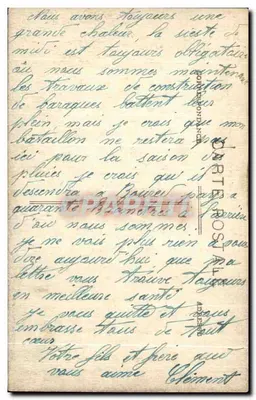 Nous avons toujours une
grande chaleur, la sieste de
midi est toujours obligatoire
où nous sommes maintenant
les travaux de construction
de baraques battent leur
plein mais je crois que mon
bataillon ne restera pas
ici pour la saison des
pluies je crois qu'il
descendra à pays à
quarante kilomètres
d'où nous sommes.
je ne vois plus rien à vous
dire aujourd'hui que ma
lettre vous trouve toujours
en meilleure santé
je vous quitte et vous
embrasse tous de tout
cœur
Votre fils et frère qui
vous aime Clément
CORRESPONDANCE
CARTE POSTALE
ADRESSE
CPAPHIL